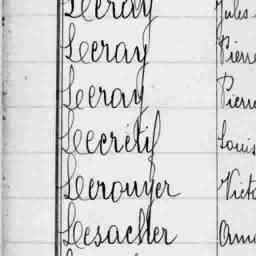 Lecray Jules
Lecray Pierre
Lecray Pierre
Lecrétif Louis
Lecrouyer Victo
Lesacher Ama